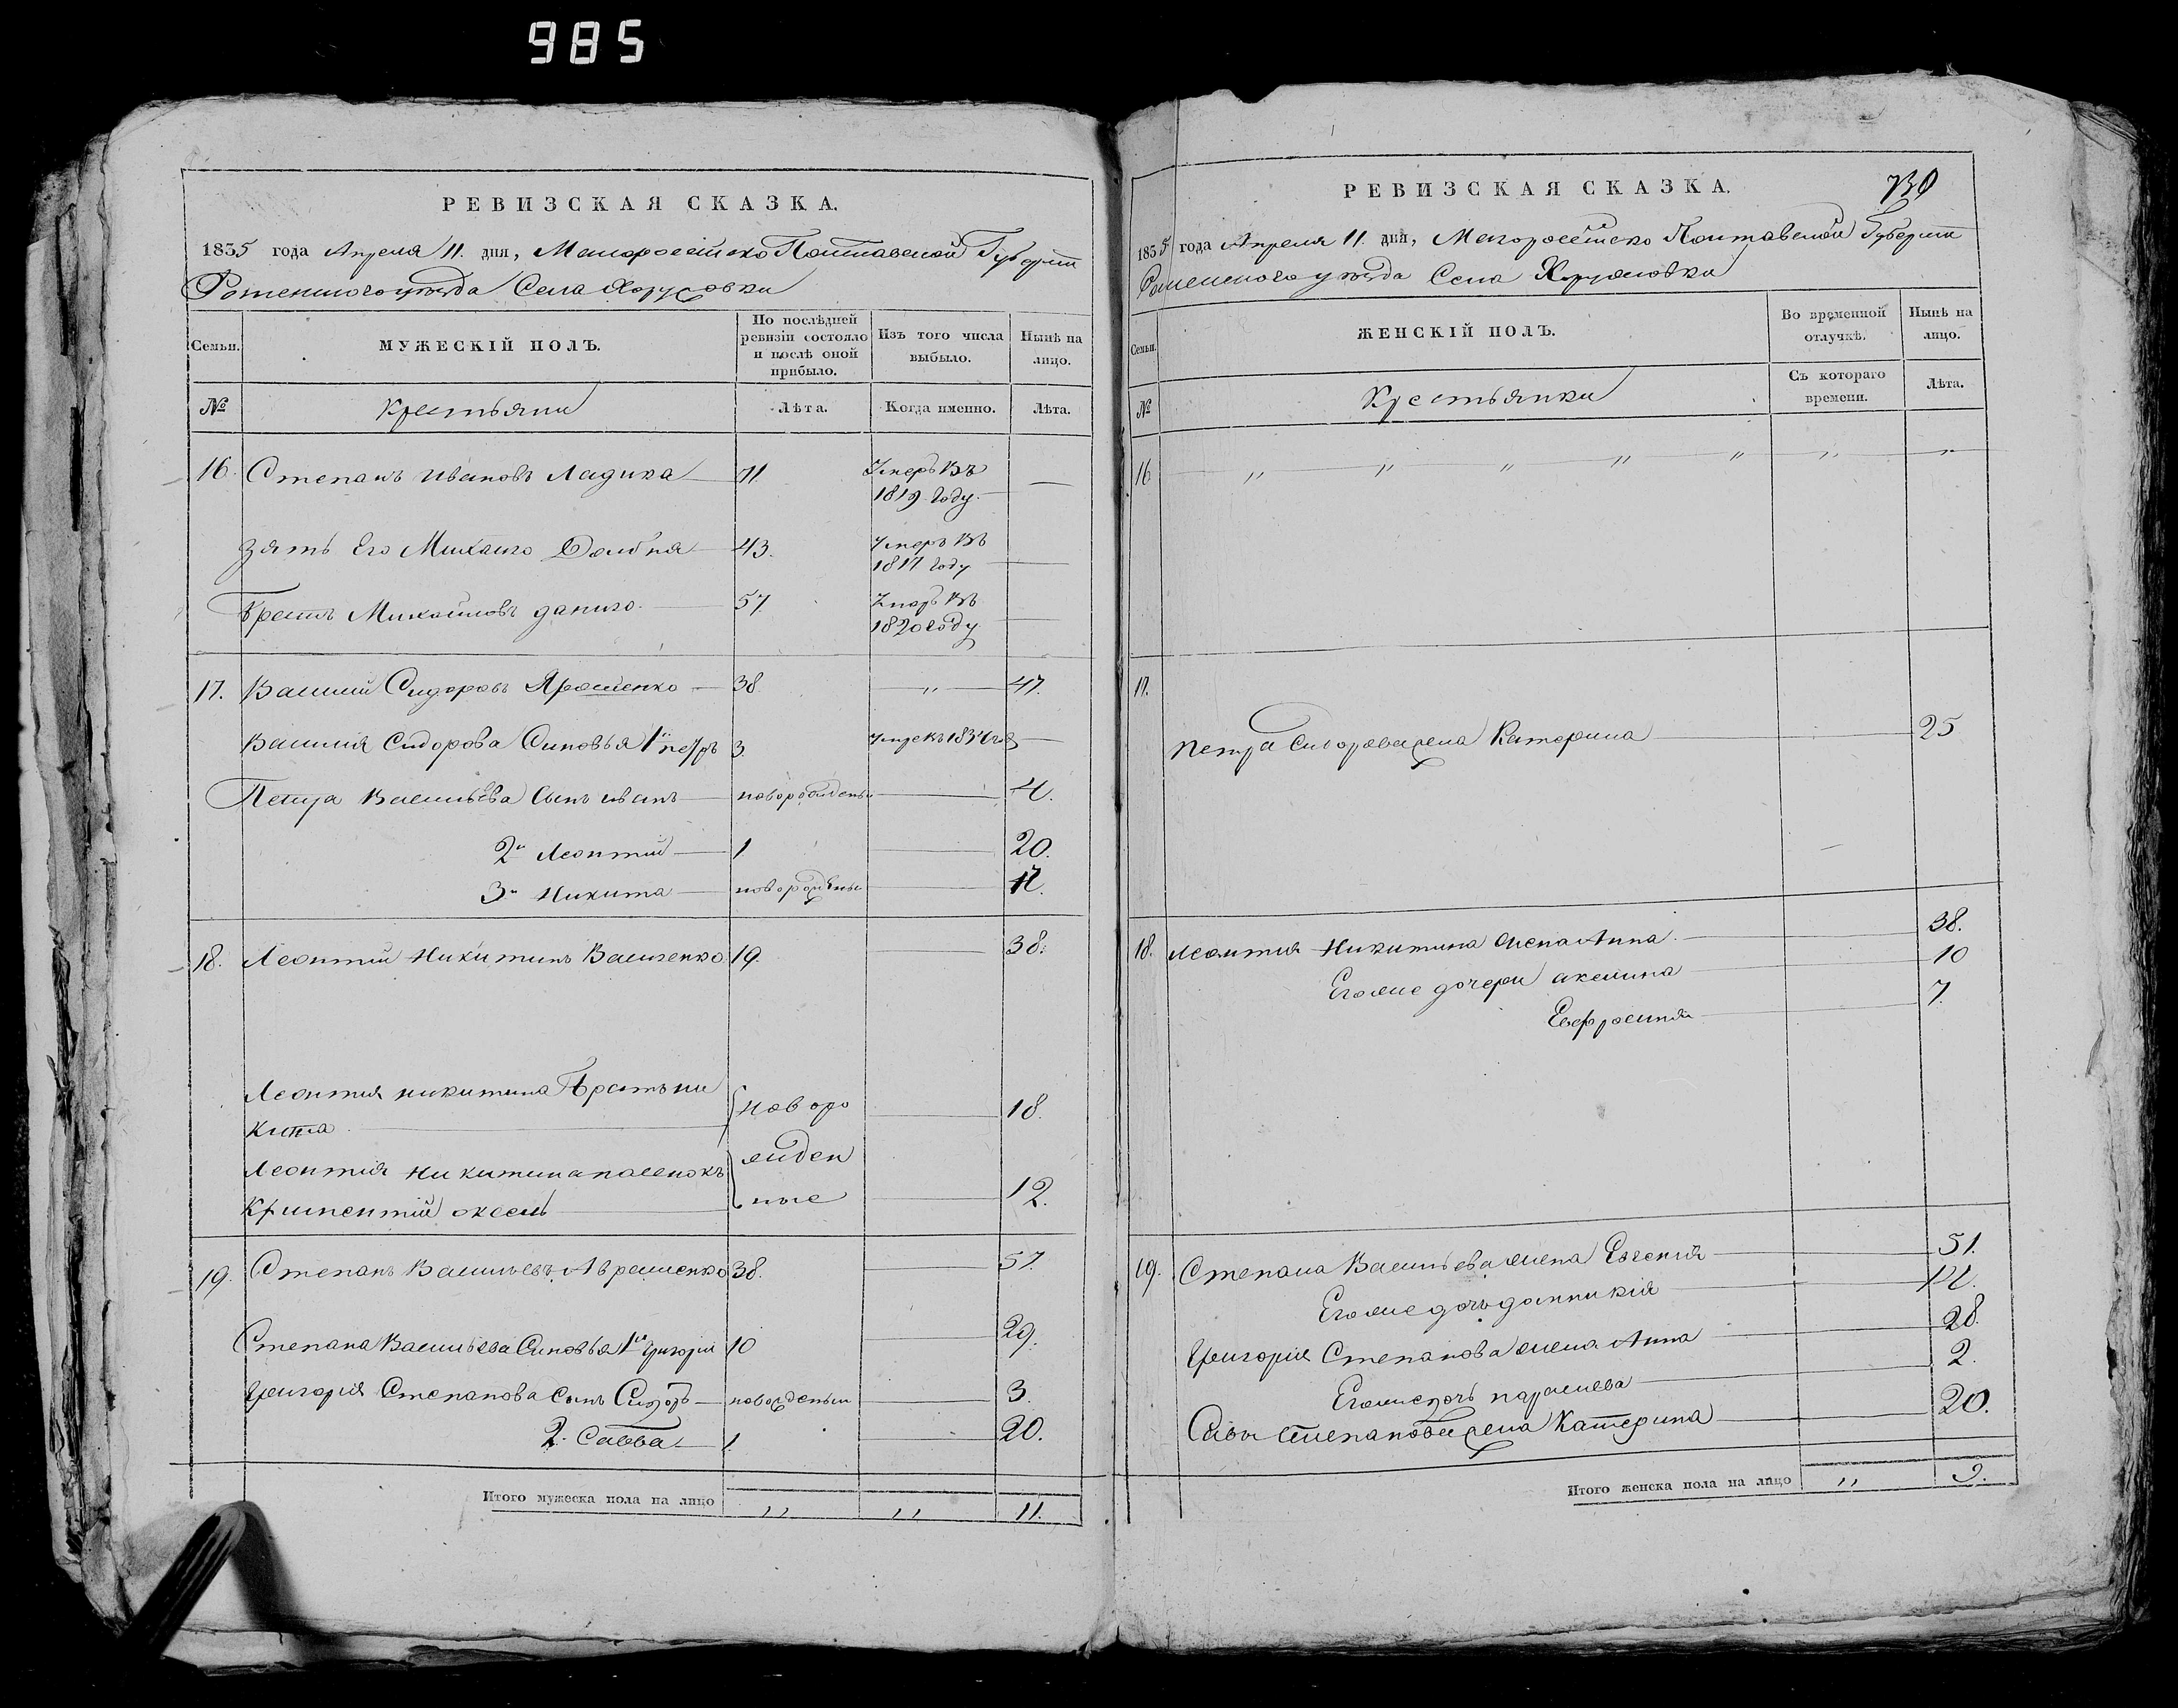 985
РЕВИЗСКАЯ СКАЗКА.
1835 года Апреля 11. дня, Малороссійско Полтавской Губерніи
Роменского уѣзда Села
Семьи.
МУЖЕСКІЙ ПОЛЪ.
По послѣдней ревизіи состояло и послѣ оной прибыло.
Изъ того числа выбыло.
Нынѣ на лицо.
№
Крестьяни
Лѣта.
Когда именно.
Лѣта.
16. Степанъ Ивановъ Ладика 71 Умеръ въ
1819 году.
зять Его Михайло Долбня 43. Умеръ въ
1817 году
Третъ Михайловъ данило 57 Умеръ въ
1820 году
17. Василий Сидоровъ Ярошенко 38. 〃 47.
Василия Сидорова Сыновья 1й петръ 3. 1834 го
Петра Васильева Сынъ иванъ новорожденъ 4.
2й Леонтий 1 20.
3й Никита новорожденъ 17.
18. Леонтий Никитинъ Василенко 19. 38.
Леонтия никитина Братъ ни
кита новоро 18.
Леонтия Никитина пасенокъ жден
ные 12.
19. Степанъ Васильевъ Аврашенко 38. 57.
Степана Васильева Сыновья 1й григорий 10 29.
Григория Степанова Сынъ Сидоръ новорденый 3.
2. Савва 1. 20.
Итого мужеска пола на лицо 〃 〃 11.
РЕВИЗСКАЯ СКАЗКА.
730
1835 года Апреля 11. дня, Малоросейско Полтавской Губерніи
Роменского уѣзда Села Хоружовки
Семьи.
ЖЕНСКІЙ ПОЛЪ.
Во временной отлучкѣ.
Нынѣ на лицо.
№
Крестьянки
Съ котораго времени.
Лѣта.
16 〃 〃 〃 〃 〃 〃 〃
17.
Петра Сидорова жена Катерина 25
18. Леонтия Никитина жена Анна 38.
Егоже дочери аксинна 10
Евфросиния 7.
19. Степана Васильева жена Евгения 51.
Егоже дочь домникия
Григория Степанова жена Анна 28.
Егоже дочь парасцева 2.
Савы Степанова жена Катерина 20.
Итого женска пола на лицо 〃 9.